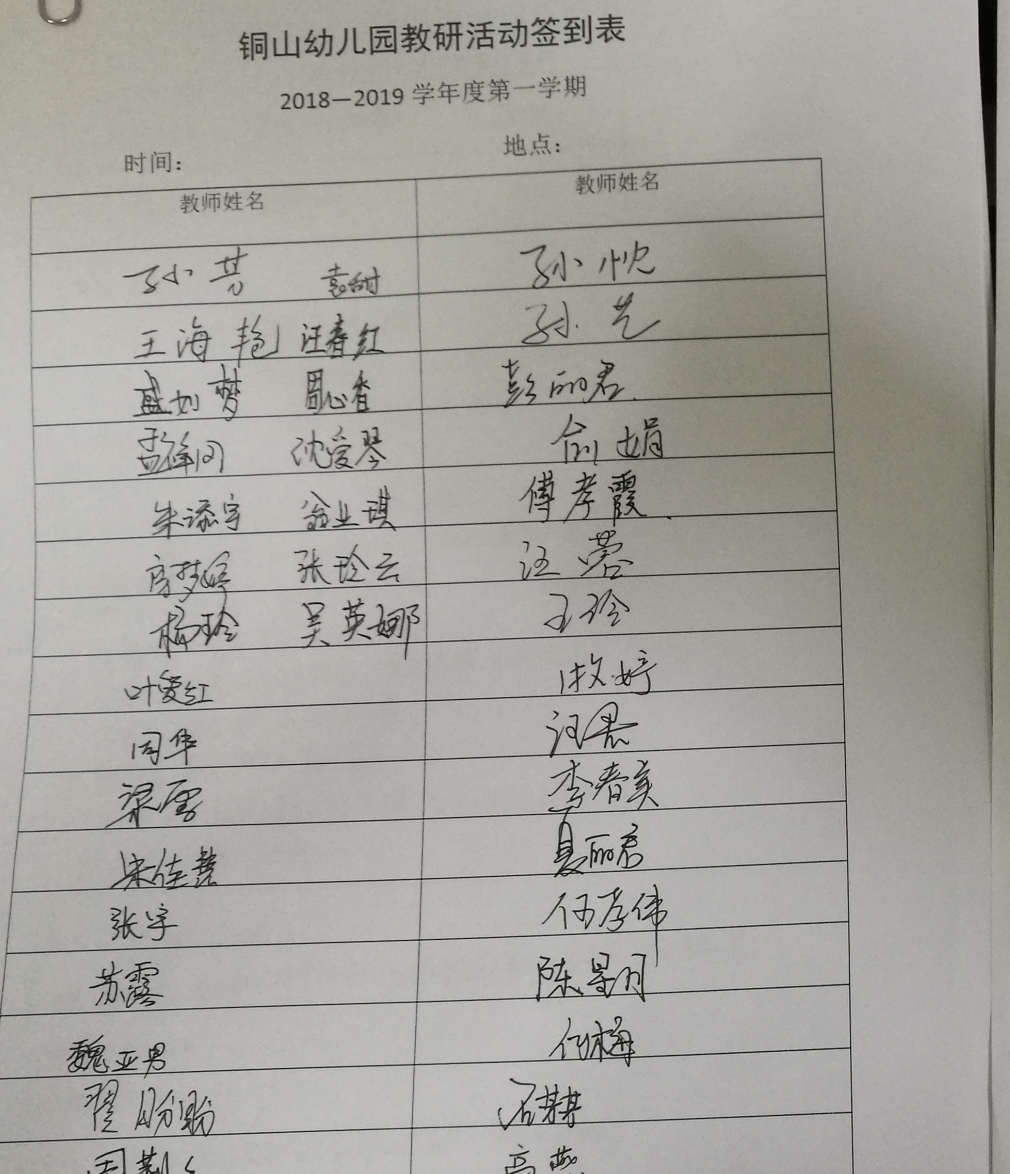 铜山幼儿园教研活动签到表
2018—2019 学年度第一学期
时间： 地点：
教师姓名 教师姓名
孙小芸 袁甜 孙小忱
王海艳 汪春红 孙艺
盛如梦 周心香 彭丽君
沈爱琴 俞娟
朱添宇 翁业琪 傅孝霞
房梦婷 张玲云 汪蓉
杨玲 吴英娜 王玲
叶爱红 婷
周华 汪君
梁雪 李春
宋佳慧 夏丽君
张宇 何孝伟
苏露 陈星月
魏亚男 何梅
翟盼盼 石梦梦
周 高燕